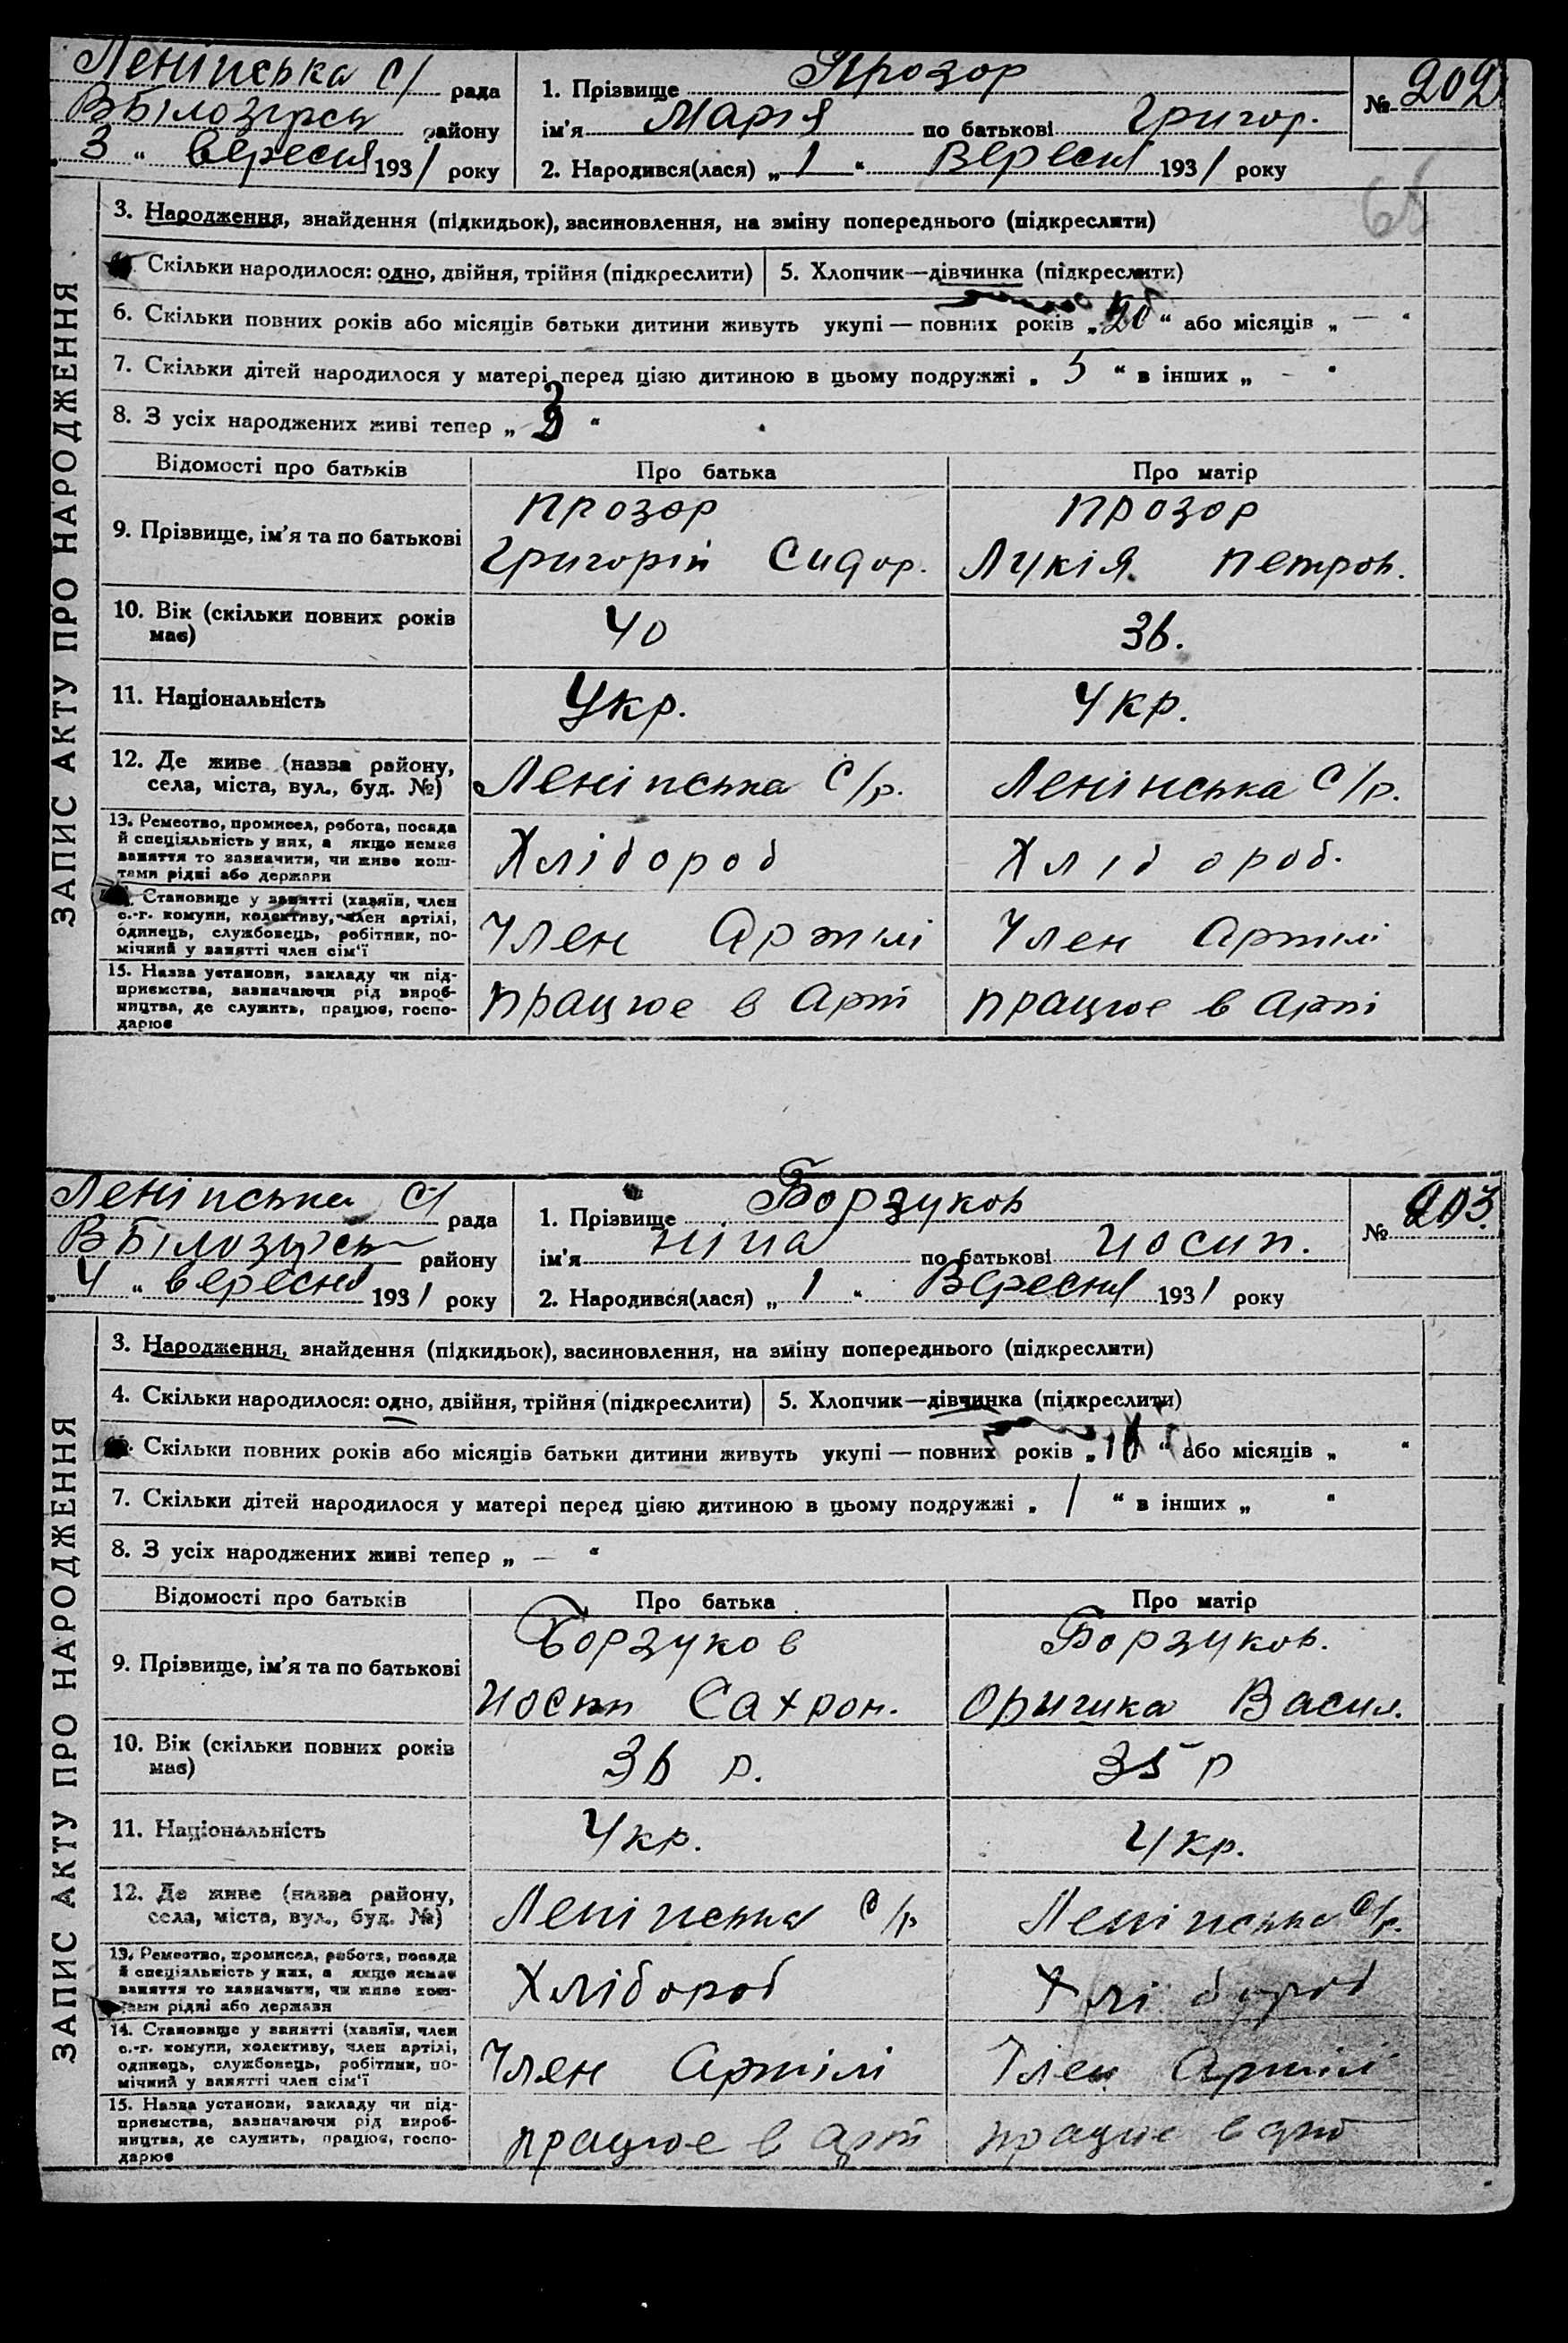 Ленінська с/ рада
ВБілозірсь району
„ 3 “ вересня 1931 року
1. Прізвище Прозор
ім'я Марія по батькові Григор.
2. Народився(лася) „ 1 “ Вересня 1931 року
№ 202
65
ЗАПИС АКТУ ПРО НАРОДЖЕННЯ
3. Народження, знайдення (підкидьок), засиновлення, на зміну попереднього (підкреслити)
Скільки народилося: одно, двійня, трійня (підкреслити) 5. Хлопчик—дівчинка (підкреслити)
6. Скільки повних років або місяців батьки дитини живуть укупі — повних років „ 20 “ або місяців „ — “
7. Скільки дітей народилося у матері перед цією дитиною в цьому подружжі „ 5 “ в інших „ - “
8. З усіх народжених живі тепер „ 3 “
Відомості про батьків Про батька Про матір
9. Прізвище, ім'я та по батькові
Прозор Прозор
Григорій Сидор. Лукія Петров.
10. Вік (скільки повних років
має)
40 36.
11. Національність Укр. Укр.
12. Де живе (назва району,
села, міста, вул., буд. №)
Ленінська С/р. Ленінська С/р.
13. Ремество, промисел, робота, посада
й спеціяльність у них, а якщо немає
заняття то зазначити, чи живе кош-
тами рідні або держави
Хлібороб Хлібороб.
Становище у занятті (хазяїн, член
с.-г. комуни, колективу, член артілі,
одинець, службовець, робітник, по-
мічний у занятті член сім'ї
Член Артілі Член Артілі
15. Назва установи, закладу чи під-
приємства, зазначаючи рід вироб-
ництва, де служить, працює, госпо-
дарює
працює в Арт працює в Арті
Ленінська С/ рада
ВБілозірсь району
„ 4 “ вересня 1931 року
1. Прізвище Борзуков
ім'я Ніна по батькові Йосип.
2. Народився(лася) „ 1 “ Вересня 1931 року
№ 203
ЗАПИС АКТУ ПРО НАРОДЖЕННЯ
3. Народження, знайдення (підкидьок), засиновлення, на зміну попереднього (підкреслити)
4. Скільки народилося: одно, двійня, трійня (підкреслити) 5. Хлопчик—дівчинка (підкреслити)
Скільки повних років або місяців батьки дитини живуть укупі — повних років „ “ або місяців „ “
7. Скільки дітей народилося у матері перед цією дитиною в цьому подружжі „ 1 “ в інших „ “
8. З усіх народжених живі тепер „ — “
Відомості про батьків Про батька Про матір
9. Прізвище, ім'я та по батькові
Борзуков Борзуков.
Йосип Сахрон. Оришка Васил.
10. Вік (скільки повних років
має)
36 р. 35 р
11. Національність Укр. Укр.
12. Де живе (назва району,
села, міста, вул., буд. №)
Ленінська С/р Ленінська С/р.
13. Ремество, промисел, робота, посада
й спеціяльність у них, а якщо немає
заняття то зазначити, чи живе кош-
тами рідні або держави
Хлібороб Хлібороб
14. Становище у занятті (хазяїн, член
с.-г. комуни, колективу, член артілі,
одинець, службовець, робітник, по-
мічний у занятті член сім'ї
Член Артілі Член Артілі
15. Назва установи, закладу чи під-
приємства, зазначаючи рід вироб-
ництва, де служить, працює, госпо-
дарює
працює в арт працює в арт